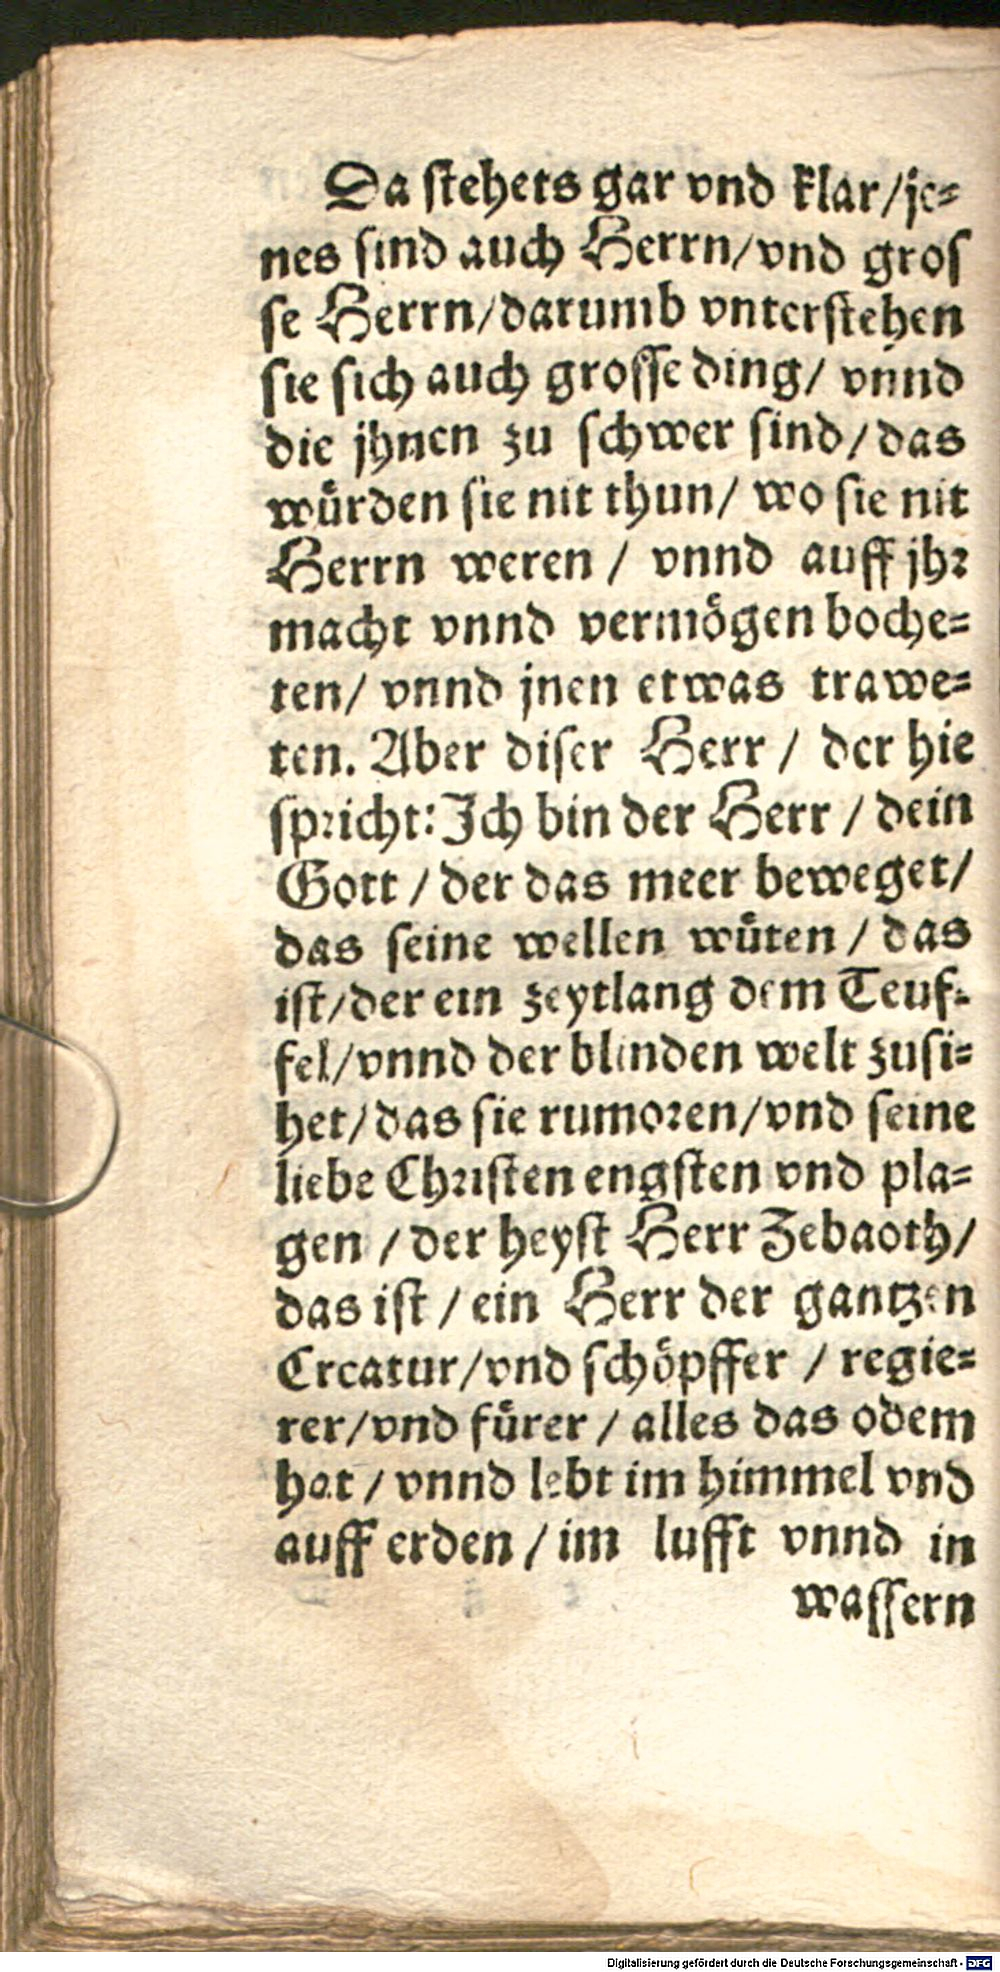 Da stehets gar vnd klar/je⸗
nes sind auch Herrn/vnd gros
se Herrn/darumb vnterstehen
sie sich auch grosse ding/ vnnd
die jhnen zu schwer sind/das
würden sie nit thun/ wo sie nit
Herrn weren / vnnd auff jhr
macht vnnd vermögen boche⸗
ten/ vnnd jnen etwas trawe⸗
ten. Aber diser Herr / der hie
spricht: Ich bin der Herr / dein
Gott / der das meer beweget/
das seine wellen wüten / das
ist/der ein zeytlang dem Teuf⸗
fel/vnnd der blinden welt zusi⸗
het/das sie rumoren/vnd seine
liebe Christen engsten vnd pla⸗
gen / der heyst Herr Zebaoth/
das ist / ein Herr der gantzen
Creatur/vnd schöpffer / regie⸗
rer/vnd fürer / alles das odem
hat / vnnd lebt im himmel vnd
auff erden / im lufft vnnd in
wassern
Digitalisierung gefördert durch die Deutsche Forschungsgemeinschaft - DFG